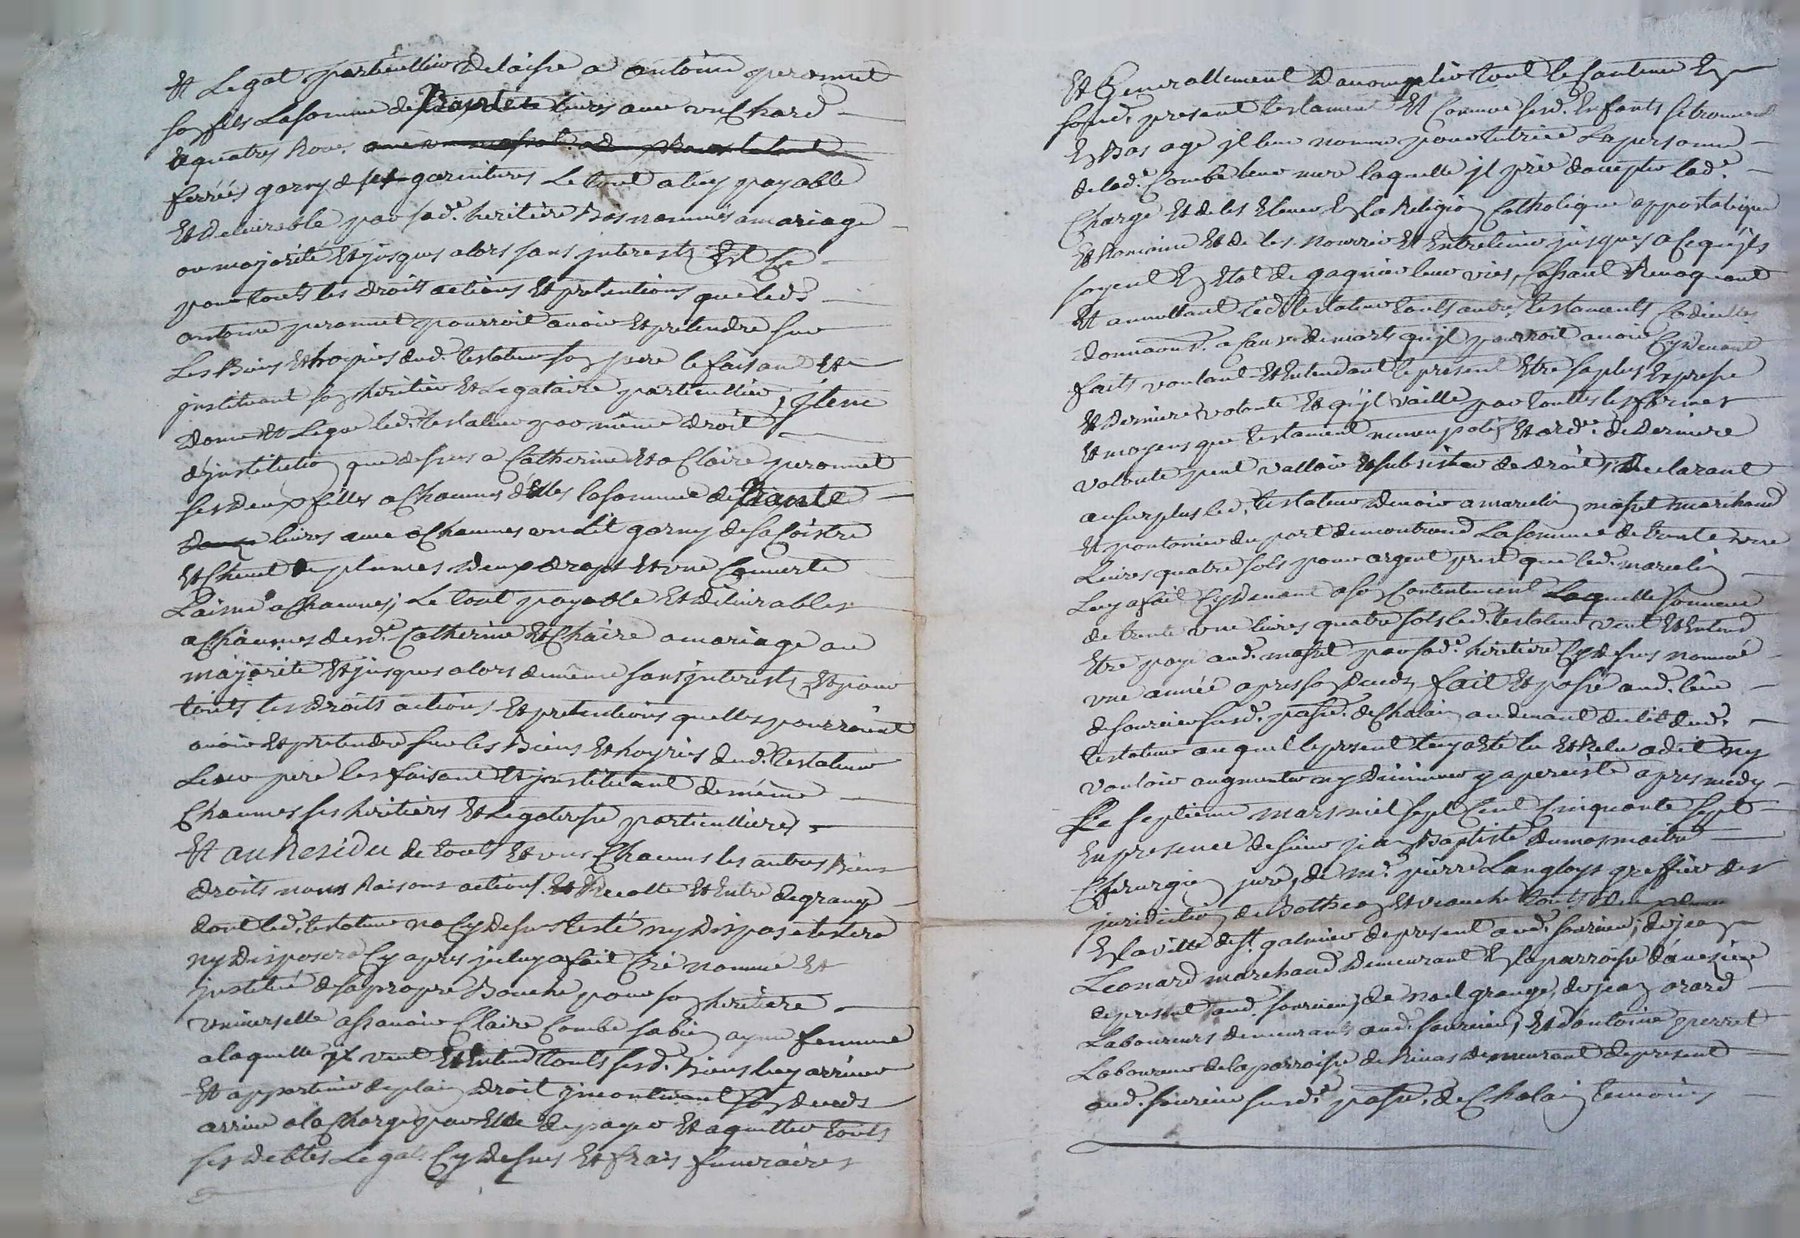 Et Legat particullier delaisse a antoine peronnet
son fils La somme de trante livres avec un Chard
a quatres Roues
ferréés garny de ses garnitures Le tout a luy payable
Et delivrable par sad.e heritiere Bas nommée a mariage
ou majorité Et jusques alors sans jnterests Et Ce
pour touts les droits actions Et pretentions que led.
antoine peronnet pourroit avoir Et pretendre sur
Les Biens Et hoyries dud. testateur son pere le faisant Et
jnstituant son heritier Et Legataire particullier, jtem
donne Et Legue led. testateur par même droit
d'jnstitution que dessus a Catherine Et a Claire peronnet
ses deux filles a Chacunes d'Elles la somme de trante
livres avec a Chacunes un Lit garny de sa Coistre
Et Chevet de plumes deux draps Et une Couverte
Laine a Chacunes, Le tout payable Et delivrables
a Chacunes desd.e Catherine Et Claire a mariage ou
majorité Et jusques alors de même sans jnterests Et pour
touts les droits actions Et pretentions quelles pourroient
avoir Et pretendre sur les Biens Et hoyries dud. testateur
Leur pere les faisant Et jnstituant de même
Chacunes ses heritiers Et Legateresse particullieres
Et au Residu de touts Et uns Chacuns les autres Biens
droits noms Raisons actions Et Recolte Et Entre de grange
dont led. testateur na Cy dessus testé ny disposé testera
ny disposera Cy apres jceluy a fait Créé nommé Et
jnstitué de sa propre Bouche pour son heritiere
universelle assavoir Claire Combe sa bien aymé femme
a laquelle jl veut Et Entend touts sesd. Biens luy arriver
Et appartenir de plain droit jncontinant son deceds
arrivé a la Charge par Elle de payer Et aquitter touts
ses debtes Legats Cy dessus Et frais funeraires
Et Generallement d'accomplir tout le Contenu En
sond. present testament Et Comme sesd. Enfants se trouvent
En Bas age jl leur nomme pour tutrice La personne
de lad.e Combe leur mere laquelle jl prie d'accepter lad.e
Charge Et de les Elever En la Religion Catholique appostolique
Et Romaine Et de les nourrir Et Entretenir jusques a Ce qujls
soyent En Etat de gagner leur vies, Cassant Revoquant
Et annullant led. testateur touts autres testaments Codicilles
donnaons. a Cause de mort qujl pourroit avoir Cy devant
faits voulant Et Entendant le present Etre sa plus Expresse
Et derniere volonté Et qujl vaille par toutes les formes
Et moyens que testament nuncupatif Et ord.e de derniere
volonté peut valloir Et subsister de droit, declarant
au surplus led. testateur devoir a marcelin masset marchand
Et pontonier du port de montrond La somme de trente une
Livres quatre sols pour argent prest que led. marcelin
Luy a fait Cy devant a son Contentement Laquelle somme
de trente une livres quatre sols led. testateur veut Et Entend
Etre payé aud. masset par sad.e heritiere Cy dessus nommé
une année apres son deceds, fait Et passé aud. lieu
de fourier susd. passe. de Chalain au devant du lit dud.
testateur auquel le present luy a Eté lu Et Relu a dit ny
vouloir augmenter ny diminuer y a persisté apres midy
Le septieme mars mil sept Cent Cinquante sept
En presence de sieur jean Baptiste dumas maitre
Chirurgien juré, de mr. pierre Langloys greffier des
juridiction de Botheon Et veauche touts deux
En la ville de st. galmier de present aud. fourier, de jean
Leonard marchand demeurant En la parroisse d'aveizieu
de present aud. fourier, de noel grange, de jean orard
Laboureurs demeurants aud. fourier, Et d'antoine perret
Laboureur de la parroisse de Rivas demeurant de present
aud. fourier susd.e passe. de Chalain temoins